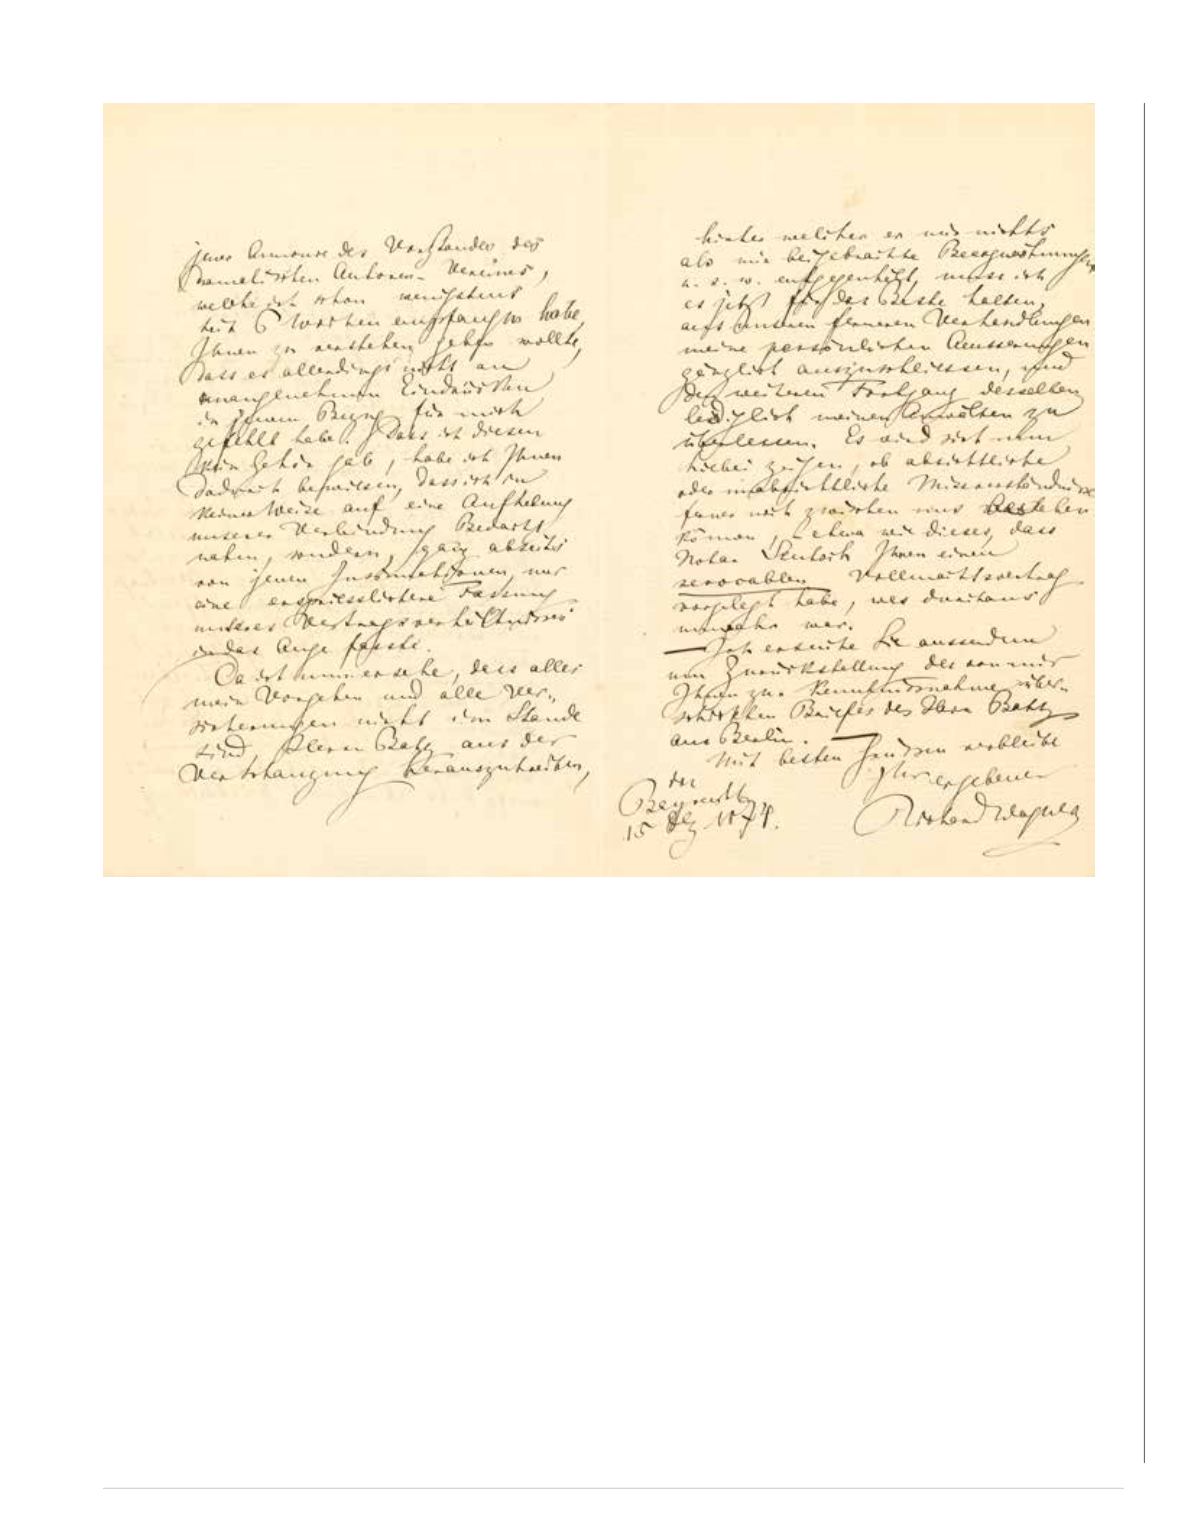 jener Annonce des Vorstandes des
Dramatischen Autoren-Vereines,
welche ich schon wenigstens
seit 6 Wochen empfangen habe,
Ihnen zu verstehen geben wollte,
dass es allerdings nicht an
unangenehmen Eindrücken
in jenem Bezug für mich
gefehlt habe. Dass ich diesen
kein Gehör gab, habe ich Ihnen
dadurch bewiesen, dass ich in
keiner Weise auf eine Aufhebung
unserer Verbindung Bedacht
nahm, sondern, ganz abseits
von jenen Insinuationen, nur
eine erspriesslichere Fassung
unseres Vertragsverhältnisses
in das Auge fasste.
Da ich nun ersehe, dass alles
mein Vorgehen und alle Ver-
sicherungen nicht im Stande
sind, Herrn Batz aus der
Verschanzung herauszutreiben,
hinter welcher er mir nichts
als mir beigebrachte Beeogwohnungen
u. s. w. entgegenhält, muss ich
es jetzt für das Beste halten,
aus unseren ferneren Verhandlungen
meine persönlichen Äusserungen
gänzlich auszuschliessen, und
den weiteren Fortgang derselben
lediglich meinen Anwälten zu
überlassen. Es wird sich nun
hiebei zeigen, ob absichtliche
oder unabsichtliche Missverständnisse
ferner noch zwischen uns bestehen
können, etwa wie dieses, dass
Notar Ihnen einen
revocablen Vollmachtsvertrag
vorgelegt habe, was durchaus
unwahr war.
— Ich ersuche Sie ausserdem
um Zurückstellung des von mir
Ihnen zur Kenntnissnahme über-
schickten Briefes des Herrn Batz
aus Berlin. —
Mit besten Grüssen verbleibe
Ihr ergebener
Richard Wagner
Bayreuth
15 Dez 1874.